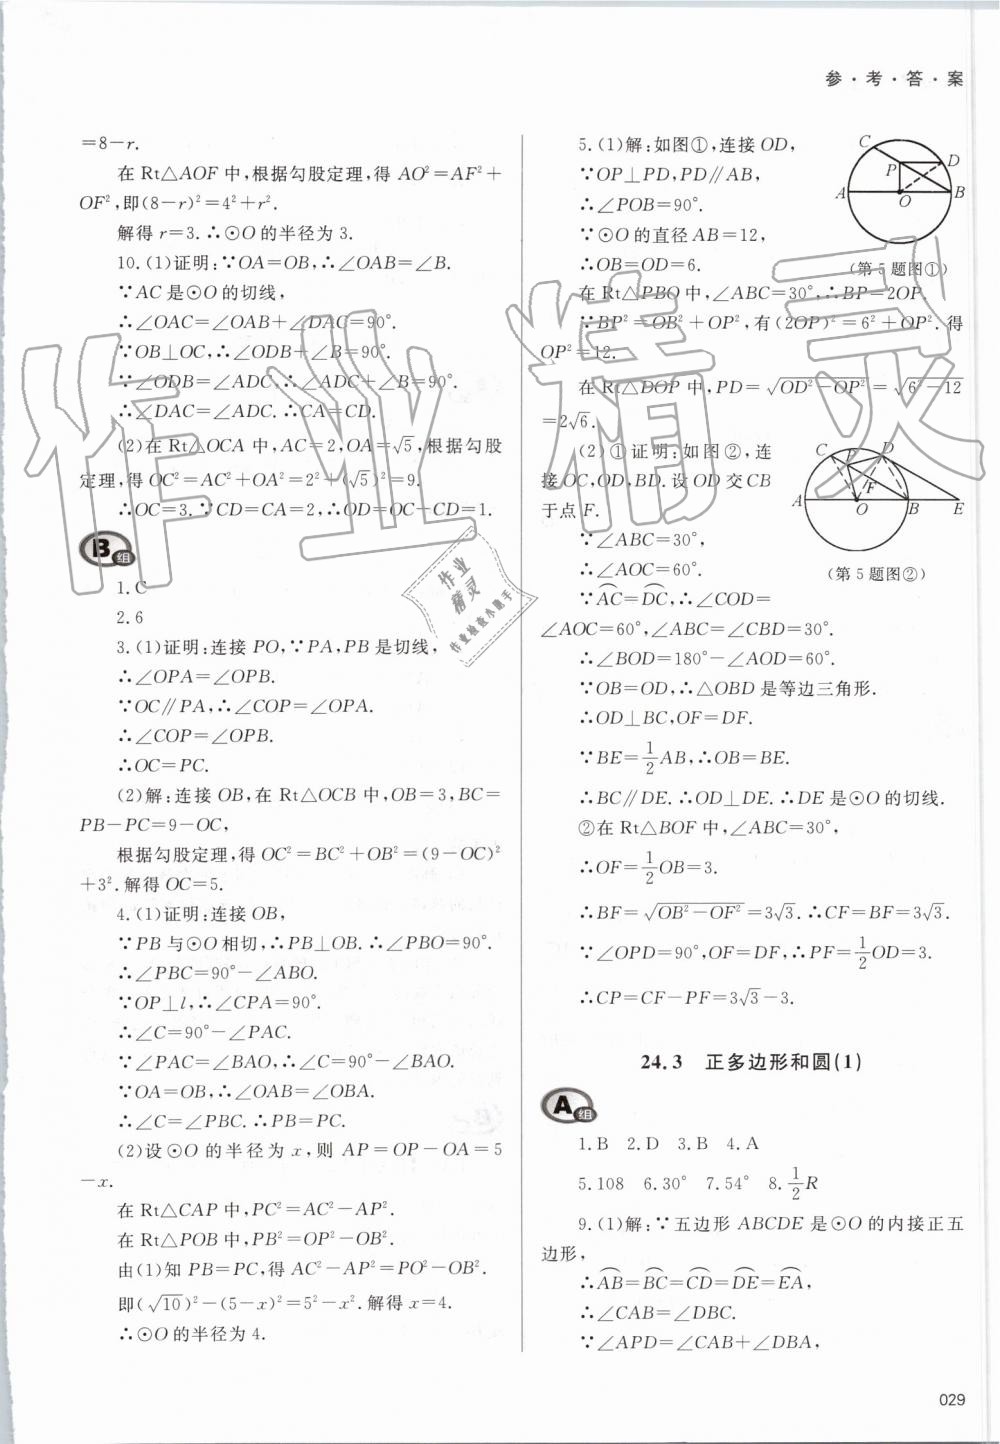 参·考·答·案
=8-r.
在 Rt△AOF 中,根据勾股定理,得 AO²=AF²+
OF²,即(8-r)²=4²+r².
解得 r=3.∴⊙O 的半径为 3.
10.(1)证明:∵OA=OB,∴∠OAB=∠B.
∵AC 是⊙O 的切线,
∴∠OAC=∠OAB+∠DAC=90°.
∵OB⊥OC,∴∠ODB+∠B=90°.
∵∠ODB=∠ADC,∴∠ADC+∠B=90°.
∴∠DAC=∠ADC.∴CA=CD.
(2)在 Rt△OCA 中,AC=2,OA=√5,根据勾股
定理,得 OC²=AC²+OA²=2²+(√5)²=9.
∴OC=3.∵CD=CA=2,∴OD=OC-CD=1.
B组
1.C
2.6
3.(1)证明:连接 PO,∵PA,PB 是切线,
∴∠OPA=∠OPB.
∵OC∥PA,∴∠COP=∠OPA.
∴∠COP=∠OPB.
∴OC=PC.
(2)解:连接 OB,在 Rt△OCB 中,OB=3,BC=
PB-PC=9-OC,
根据勾股定理,得 OC²=BC²+OB²=(9-OC)²
+3².解得 OC=5.
4.(1)证明:连接 OB,
∵PB 与⊙O 相切,∴PB⊥OB.∴∠PBO=90°.
∴∠PBC=90°-∠ABO.
∵OP⊥l,∴∠CPA=90°.
∴∠C=90°-∠PAC.
∵∠PAC=∠BAO,∴∠C=90°-∠BAO.
∵OA=OB,∴∠OAB=∠OBA.
∴∠C=∠PBC.∴PB=PC.
(2)设⊙O 的半径为 x,则 AP=OP-OA=5
-x.
在 Rt△CAP 中,PC²=AC²-AP².
在 Rt△POB 中,PB²=OP²-OB².
由(1)知 PB=PC,得 AC²-AP²=PO²-OB².
即(√10)²-(5-x)²=5²-x².解得 x=4.
∴⊙O 的半径为 4.
5.(1)解:如图①,连接 OD,
∵OP⊥PD,PD∥AB,
∴∠POB=90°.
∵⊙O 的直径 AB=12,
∴OB=OD=6.
C
P
D
A
O
B
(第 5 题图①)
在 Rt△PBO 中,∠ABC=30°,∴BP=2OP.
∵BP²=OB²+OP²,有(2OP)²=6²+OP².得
OP²=12.
在 Rt△DOP 中,PD=√(OD²-OP²)=√(6²-12)
=2√6.
(2)①证明:如图②,连
接 OC,OD,BD.设 OD 交 CB
于点 F.
∵∠ABC=30°,
∴∠AOC=60°.
C
P
D
F
A
O
B
E
(第 5 题图②)
∵AC⌒=DC⌒,∴∠COD=
∠AOC=60°,∠ABC=∠CBD=30°.
∴∠BOD=180°-∠AOD=60°.
∵OB=OD,∴△OBD 是等边三角形.
∴OD⊥BC,OF=DF.
∵BE=1/2 AB,∴OB=BE.
∴BC∥DE.∴OD⊥DE.∴DE 是⊙O 的切线.
②在 Rt△BOF 中,∠ABC=30°,
∴OF=1/2 OB=3.
∴BF=√(OB²-OF²)=3√3.∴CF=BF=3√3.
∵∠OPD=90°,OF=DF,∴PF=1/2 OD=3.
∴CP=CF-PF=3√3-3.
24.3 正多边形和圆(1)
A组
1.B 2.D 3.B 4.A
5.108 6.30° 7.54° 8.1/2 R
9.(1)解:∵五边形 ABCDE 是⊙O 的内接正五
边形,
∴AB⌒=BC⌒=CD⌒=DE⌒=EA⌒,
∴∠CAB=∠DBC.
∵∠APD=∠CAB+∠DBA,
029
作业精灵
作业
精灵
作业检查小助手